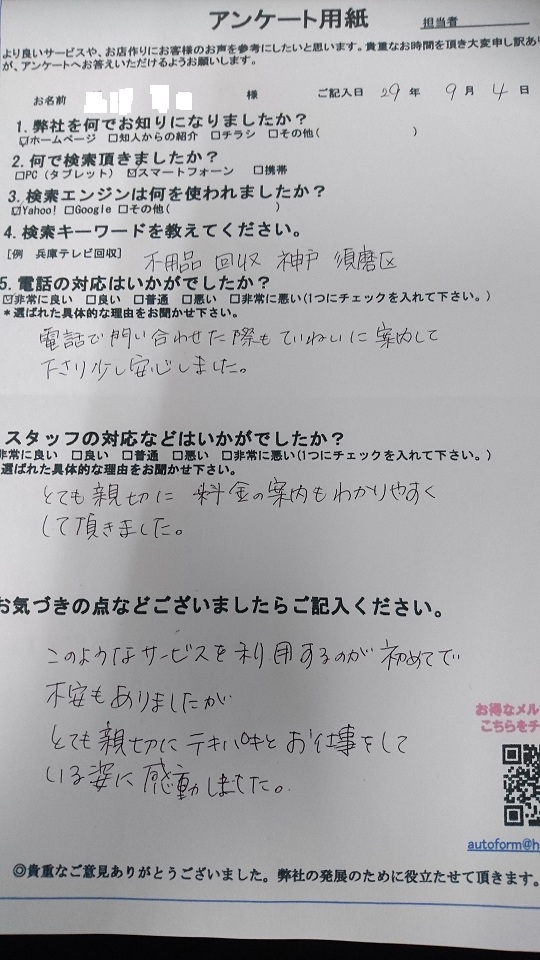 アンケート用紙
担当者
より良いサービスや、お店作りにお客様のお声を参考にしたいと思います。貴重なお時間を頂き大変申し訳あり
が、アンケートへお答えいただけるようお願いします。
お名前 様 ご記入日 29 年 9 月 4 日
1. 弊社を何でお知りになりましたか?
☑ホームページ □知人からの紹介 □チラシ □その他( )
2. 何で検索頂きましたか?
□PC(タブレット) ☑スマートフォーン □携帯
3. 検索エンジンは何を使われましたか?
☑Yahoo! □Google □その他( )
4. 検索キーワードを教えてください。
[例 兵庫テレビ回収] 不用品 回収 神戸 須磨区
5. 電話の対応はいかがでしたか?
☑非常に良い □良い □普通 □悪い □非常に悪い(1つにチェックを入れて下さい。)
*選ばれた具体的な理由をお聞かせ下さい。
電話で問い合わせた際もていねいに案内して
下さり少し安心しました。
スタッフの対応などはいかがでしたか?
非常に良い □良い □普通 □悪い □非常に悪い(1つにチェックを入れて下さい。)
選ばれた具体的な理由をお聞かせ下さい。
とても親切に 料金の案内もわかりやすく
して頂きました。
お気づきの点などございましたらご記入ください。
このようなサービスを利用するのが初めてで
不安もありましたが
とても親切にテキパキとお仕事をして
いる姿に感動しました。
お得なメル
こちらをチ
autoform@h
◎貴重なご意見ありがとうございました。弊社の発展のために役立たせて頂きます。